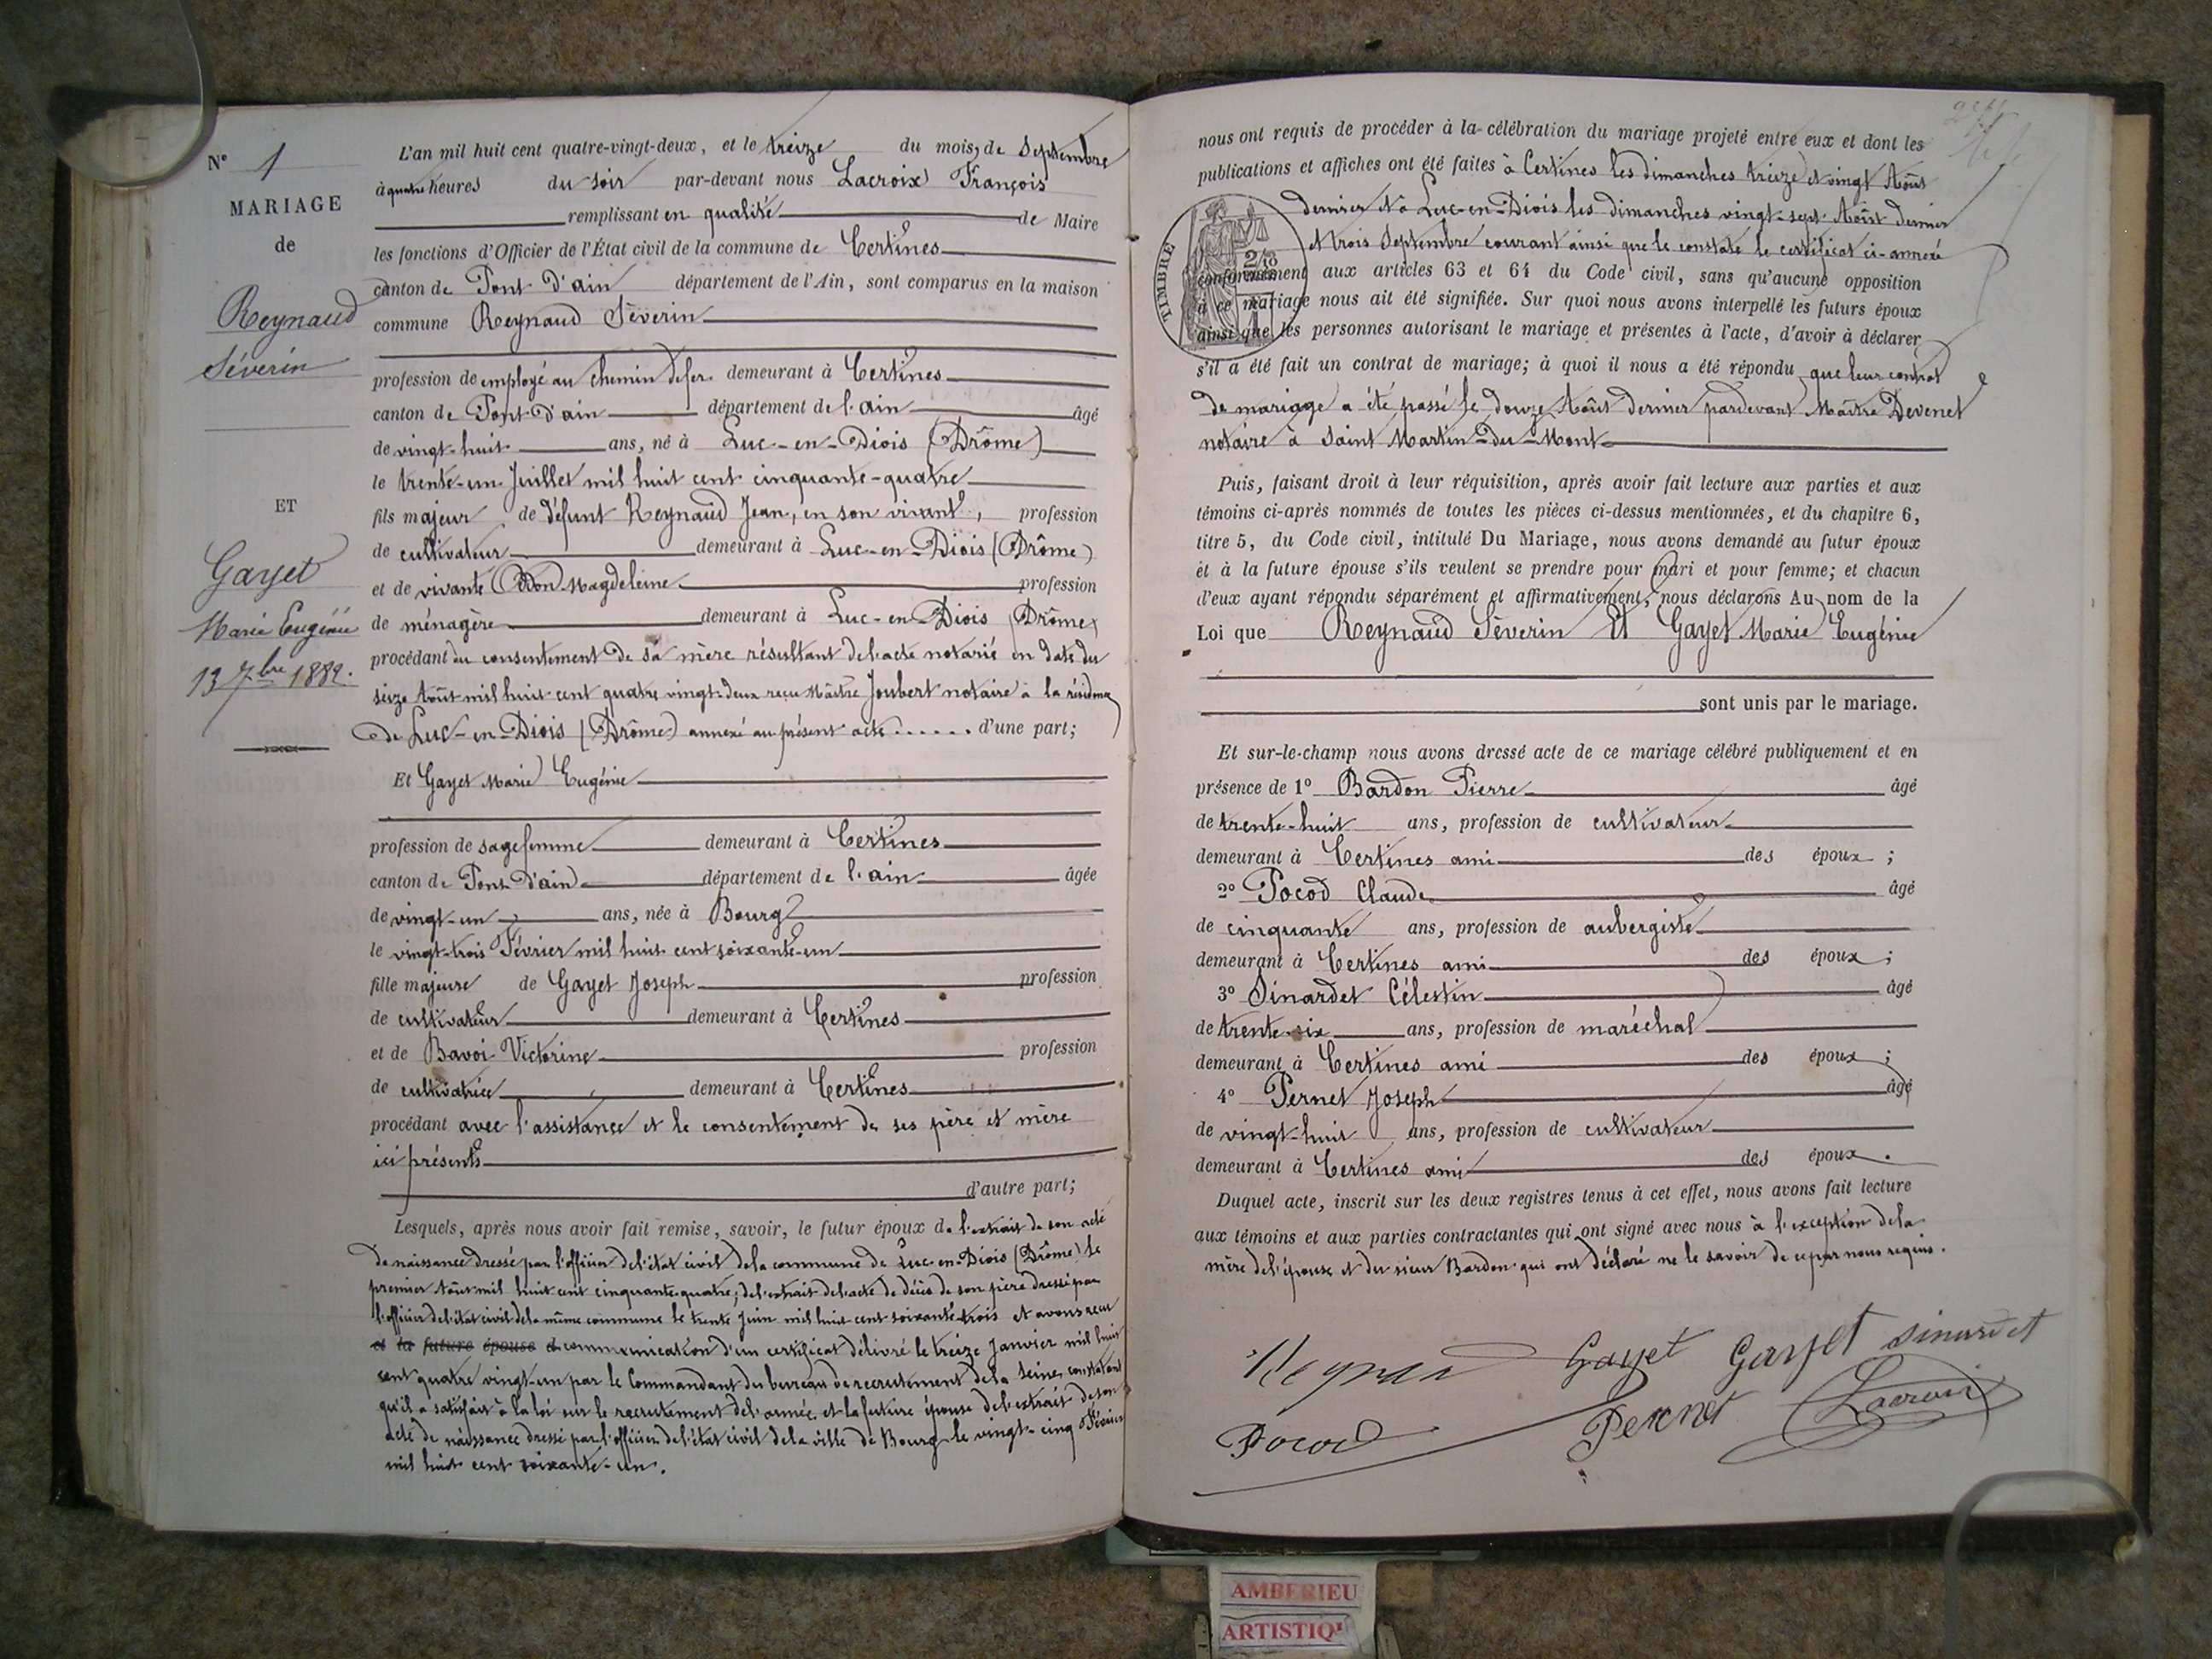 N° 1
MARIAGE
de
Reynaud
Séverin
ET
Gayet
Marie Eugénie
13 7bre 1882.
L'an mil huit cent quatre-vingt-deux, et le treize du mois, de Septembre
à quatre heures du soir par-devant nous Lacroix François
remplissant en qualité de Maire
les fonctions d'Officier de l'État civil de la commune de Certines
canton de Pont-D'ain département de l'Ain, sont comparus en la maison
commune Reynaud Séverin
profession de employé au chemin de fer demeurant à Certines
canton de Pont-D'ain département de l'ain âgé
de vingt-huit ans, né à Luc-en-Diois (Drôme)
le trente-un Juillet mil huit cent cinquante-quatre
fils majeur de défunt Reynaud Jean, en son vivant, profession
de cultivateur demeurant à Luc-en-Diois (Drôme)
et de vivante Odon Magdeleine profession
de ménagère demeurant à Luc-en-Diois (Drôme)
procédant du consentement de sa mère résultant de l'acte notarié en date du
seize Août mil huit cent quatre vingt-deux reçu Maître Joubert notaire à la résidence
de Luc-en-Diois (Drôme) annexé au présent acte ...... d'une part;
Et Gayet Marie Eugénie
profession de sagefemme demeurant à Certines
canton de Pont-D'ain département de l'ain âgée
de vingt-un ans, née à Bourg
le vingt-trois Février mil huit cent soixante-un
fille majeure de Gayet Joseph profession
de cultivateur demeurant à Certines
et de Bavoi Victorine profession
de cultivatrice demeurant à Certines
procédant avec l'assistance et le consentement de ses père et mère
ici présents
d'autre part;
Lesquels, après nous avoir fait remise, savoir, le futur époux de l'extrait de son acte
de naissance dressé par l'officier de l'état civil de la commune de Luc-en-Diois (Drôme) le
premier Août mil huit cent cinquante quatre; de l'extrait de l'acte de décès de son père dressé par
l'officier de l'état civil de la même commune le trente Juin mil huit cent soixante trois et avons reçu
et la future épouse d communication d'un certificat délivré le treize Janvier mil huit
cent quatre vingt-un par le Commandant du bureau de recrutement de la Seine, constatant
qu'il a satisfait à la loi sur le recrutement de l'armée et la future épouse de l'extrait de son
acte de naissance dressé par l'officier de l'état civil de la ville de Bourg le vingt-cinq Février
mil huit cent soixante-un.
nous ont requis de procéder à la célébration du mariage projeté entre eux et dont les
publications et affiches ont été faites à Certines les dimanches treize et vingt Août
dernier et à Luc-en-Diois les dimanches vingt-sept Août dernier
et trois Septembre courant ainsi que le constate le certificat ci-annexé
TIMBRE
conformément aux articles 63 et 64 du Code civil, sans qu'aucune opposition
à ce mariage nous ait été signifiée. Sur quoi nous avons interpellé les futurs époux
ainsi que les personnes autorisant le mariage et présentes à l'acte, d'avoir à déclarer
s'il a été fait un contrat de mariage; à quoi il nous a été répondu que leur contrat
de mariage a été passé le douze Août dernier pardevant Maître Devenet
notaire à Saint Martin-du-Mont
Puis, faisant droit à leur réquisition, après avoir fait lecture aux parties et aux
témoins ci-après nommés de toutes les pièces ci-dessus mentionnées, et du chapitre 6,
titre 5, du Code civil, intitulé Du Mariage, nous avons demandé au futur époux
et à la future épouse s'ils veulent se prendre pour mari et pour femme; et chacun
d'eux ayant répondu séparément et affirmativement, nous déclarons Au nom de la
Loi que Reynaud Séverin Et Gayet Marie Eugénie
sont unis par le mariage.
Et sur-le-champ nous avons dressé acte de ce mariage célébré publiquement et en
présence de 1° Bardon Pierre âgé
de trente-huit ans, profession de cultivateur
demeurant à Certines ami des époux ;
2° Pocod Claude âgé
de cinquante ans, profession de aubergiste
demeurant à Certines ami des époux ;
3° Sinardet Célestin âgé
de trente-six ans, profession de maréchal
demeurant à Certines ami des époux ;
4° Pernet Joseph âgé
de vingt-huit ans, profession de cultivateur
demeurant à Certines ami des époux.
Duquel acte, inscrit sur les deux registres tenus à cet effet, nous avons fait lecture
aux témoins et aux parties contractantes qui ont signé avec nous à l'exception de la
mère de l'épouse et du sieur Bardon qui ont déclaré ne le savoir de ce par nous requis.
Gayet Gayet sinardet
Pocod Pernet Lacroix
AMBERIEU
ARTISTIQ